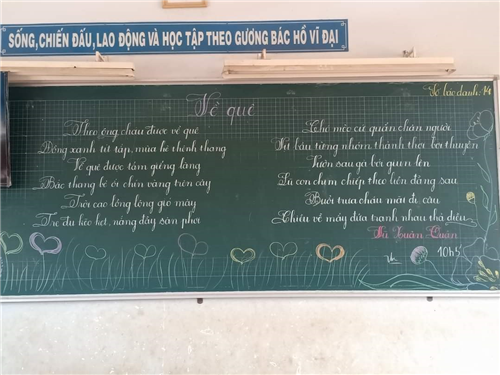 SỐNG, CHIẾN ĐẤU, LAO ĐỘNG VÀ HỌC TẬP THEO GƯƠNG BÁC HỒ VĨ ĐẠI
Số báo danh: 14
Về quê
Theo ông cháu được về quê
Đồng xanh tít tắp, mùa hè thênh thang
Về quê được tắm giếng làng
Bắc thang bẻ ổi chín vàng trên cây
Trời cao lồng lộng gió mây
Tre đu kẽo kẹt, nắng đầy sân phơi
Chó mèo cứ quẩn chân người
Túi bầu từng nhóm thảnh thơi bơi thuyền
Vườn sau gà bới giun lên
Lũ con chim chíp theo liền đằng sau
Buổi trưa cháu mải đi câu
Chiều về mấy đứa tranh nhau thả diều
Hà Xuân Quân
10h5